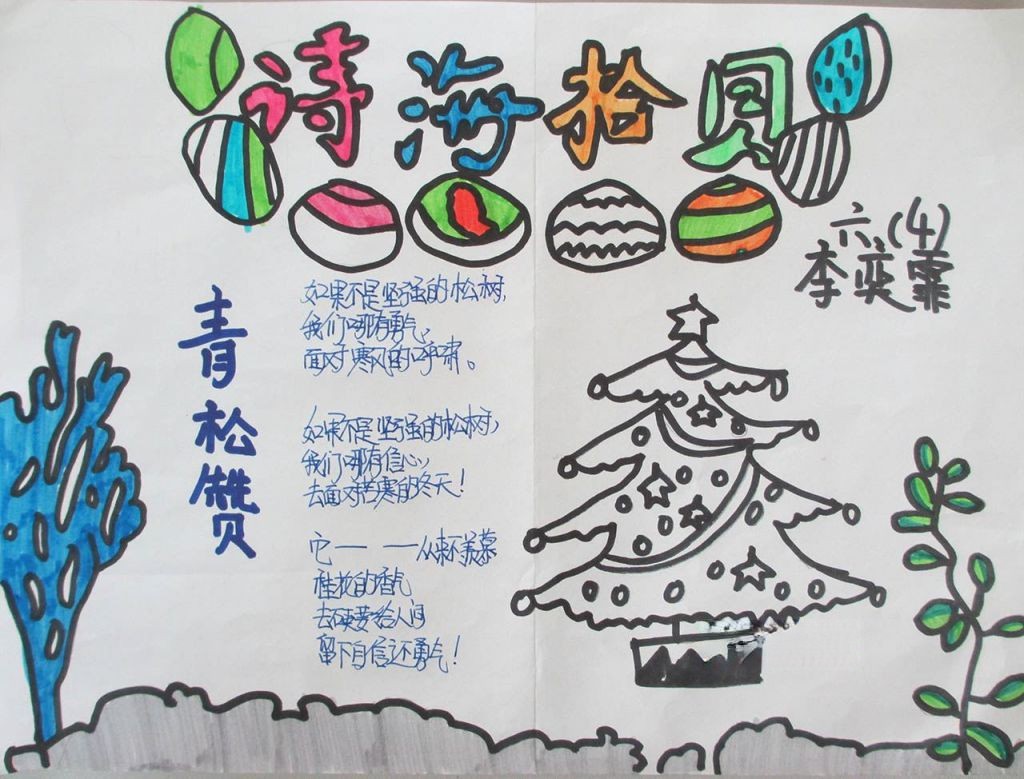 诗海拾贝
六(4)
李奕霏
青松赞
如果不是坚强的松树,
我们哪有勇气,
面对寒风的呼啸。
如果不是坚强的松树,
我们哪有信心,
去面对苦寒的冬天!
它——从来不羡慕
桂花的香气
去硬要给人间
留下自信还勇气!